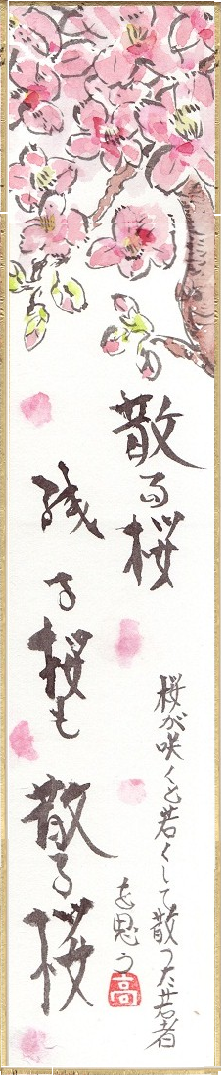 散る桜
残る桜も散る桜
桜が咲くと若くして散った若者
を思う
高